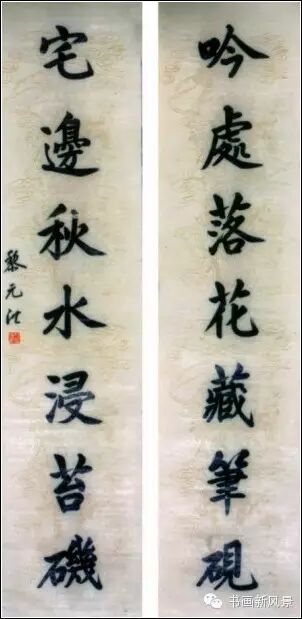 吟處落花藏筆硯
宅邊秋水浸苔磯
黎元洪
书画新风景